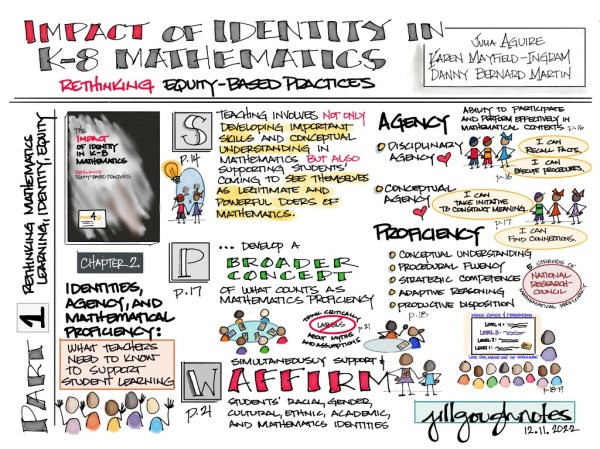 IMPACT OF IDENTITY IN
K-8 MATHEMATICS
RETHINKING EQUITY-BASED PRACTICES
JULIA AGUIRE
KAREN MAYFIELD-INGRAM
DANNY BERNARD MARTIN
PART 1
RETHINKING MATHEMATICS
LEARNING, IDENTITY, EQUITY
The
IMPACT
OF IDENTITY
IN K-8
MATHEMATICS
RETHINKING
EQUITY-BASED PRACTICES
CHAPTER 2
IDENTITIES,
AGENCY, AND
MATHEMATICAL
PROFICIENCY:
WHAT TEACHERS
NEED TO KNOW
TO SUPPORT
STUDENT LEARNING
S
P.14
TEACHING INVOLVES NOT ONLY
DEVELOPING IMPORTANT
SKILLS AND CONCEPTUAL
UNDERSTANDING IN
MATHEMATICS BUT ALSO
SUPPORTING STUDENTS'
COMING TO SEE THEMSELVES
AS LEGITIMATE AND
POWERFUL DOERS OF
MATHEMATICS.
P
P.17
... DEVELOP A
BROADER
CONCEPT
OF WHAT COUNTS AS
MATHEMATICS PROFICIENCY
THINK CRITICALLY
LABELS
ABOUT MYTHS
AND ASSUMPTIONS
P.21
W
P.21
SIMULTANEOUSLY SUPPORT &
AFFIRM
STUDENTS' RACIAL, GENDER,
CULTURAL, ETHNIC, ACADEMIC,
AND MATHEMATICS IDENTITIES
AGENCY
ABILITY TO PARTICIPATE
AND PERFORM EFFECTIVELY IN
MATHEMATICAL CONTEXTS P.16
DISCIPLINARY
AGENCY
I CAN
RECALL FACTS.
I CAN
EXECUTE PROCEDURES.
P.16
CONCEPTUAL
AGENCY
I CAN
TAKE INITIATIVE
TO CONSTRUCT MEANING.
P.17
I CAN
FIND CONNECTIONS.
PROFICIENCY
CONCEPTUAL UNDERSTANDING
PROCEDURAL FLUENCY
STRATEGIC COMPETENCE
ADAPTIVE REASONING
PRODUCTIVE DISPOSITION
P.18
5 STRANDS OF
MATHEMATICAL PROFICIENCY
NATIONAL
RESEARCH
COUNCIL
LEVEL 4:
LEVEL 3:
LEVEL 2:
LEVEL 1:
P.18-19
jillgoughnotes
12.11.2022